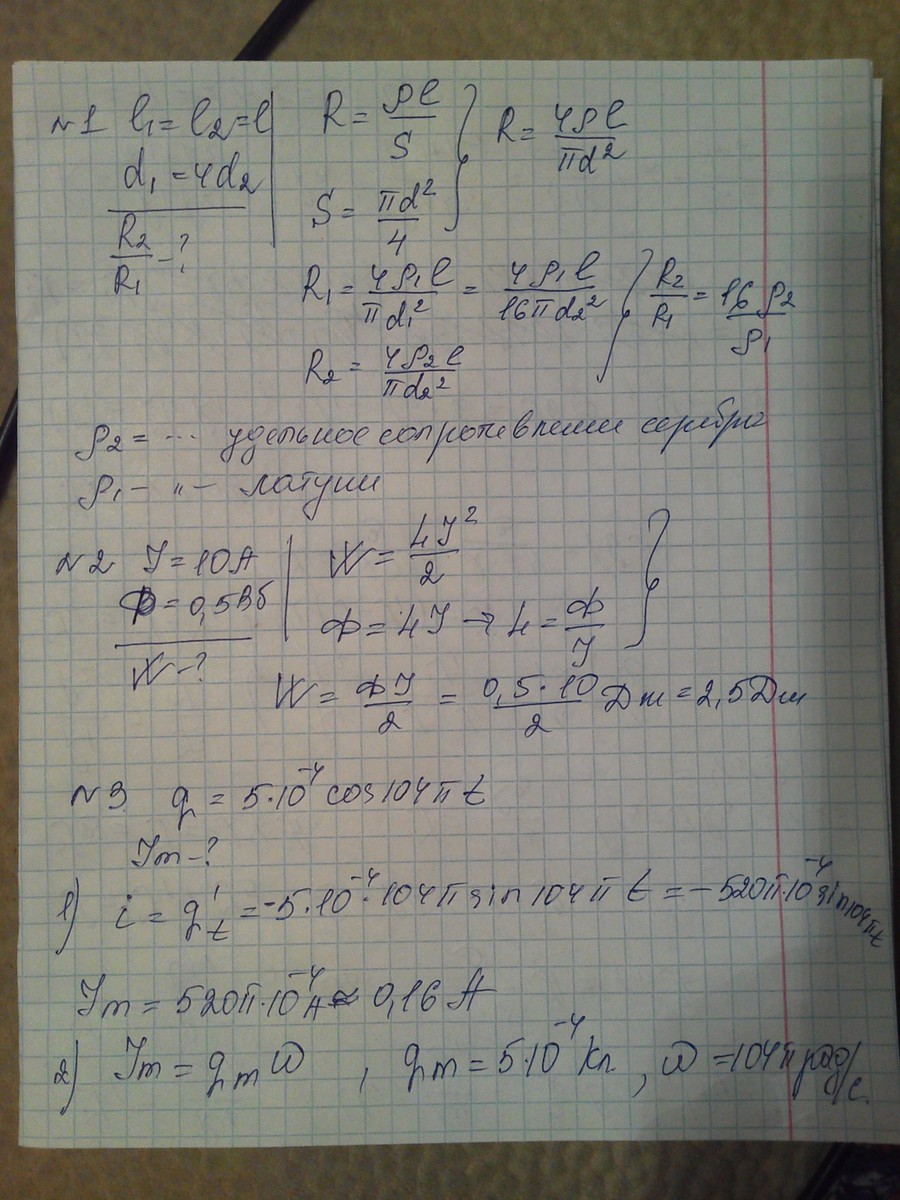 №1 l₁ = l₂ = l
d₁ = 4d₂
R₂/R₁ - ?
R = ρl/S
S = πd²/4
R = 4ρl/πd²
R₁ = 4ρ₁l/πd₁² = 4ρ₁l/16πd₂²
R₂ = 4ρ₂l/πd₂²
R₂/R₁ = 16ρ₂/ρ₁
ρ₂ = ... удельное сопротивление серебра
ρ₁ - " - латуни
№2 I = 10А
Ф = 0,5Вб
W - ?
W = LI²/2
Ф = LI → L = Ф/I
W = ФI/2 = 0,5·10/2 Дж = 2,5Дж
№3 q = 5·10⁻⁴ cos104πt
Im - ?
1) i = q't = -5·10⁻⁴·104π sin104πt = -520π·10⁻⁴ sin104πt
Im = 520π·10⁻⁴A ≈ 0,16A
2) Im = qmω , qm = 5·10⁻⁴Кл , ω = 104π рад/с.